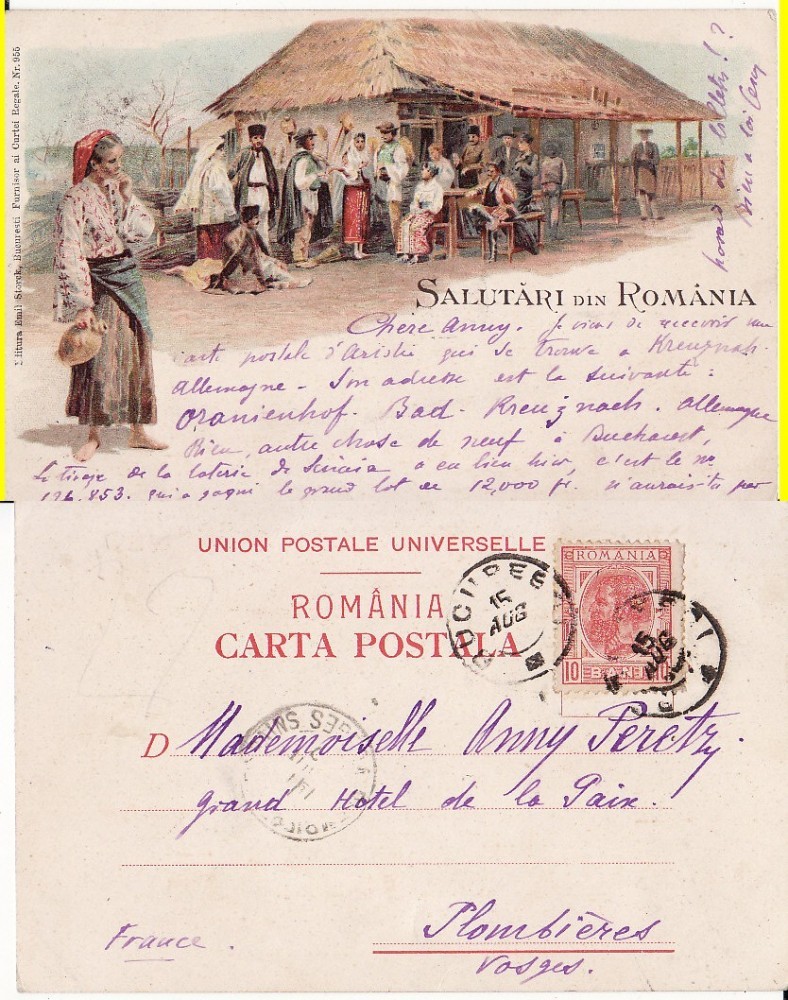 Editura Emil Storck, Bucuresti Furnisor ai Curtei Regale. Nr. 955
SALUTĂRI DIN ROMÂNIA
Chère Anny. Je viens de recevoir une
carte postale d'Aristie qui se trouve a Kreuznach.
Allemagne - Son adresse est la suivante:
Oranienhof. Bad-Kreuznach. Allemagne
Rien, autre chose de neuf à Bucharest,
Le tirage de la loterie de Sinaia a eu lieu hier, c'est le no
126.853. qui a gagné le grand lot de 12,000 fr. n'aurais-tu pas
de billets!?
Bien a toi
UNION POSTALE UNIVERSELLE
ROMÂNIA
CARTA POSTALA
ROMANIA
10 BANI 10
BUCURESCI
15
AUG
15
AUG
D Mademoiselle Anny Peretz.
Grand Hotel de la Paix.
Plombières
Vosges.
France.